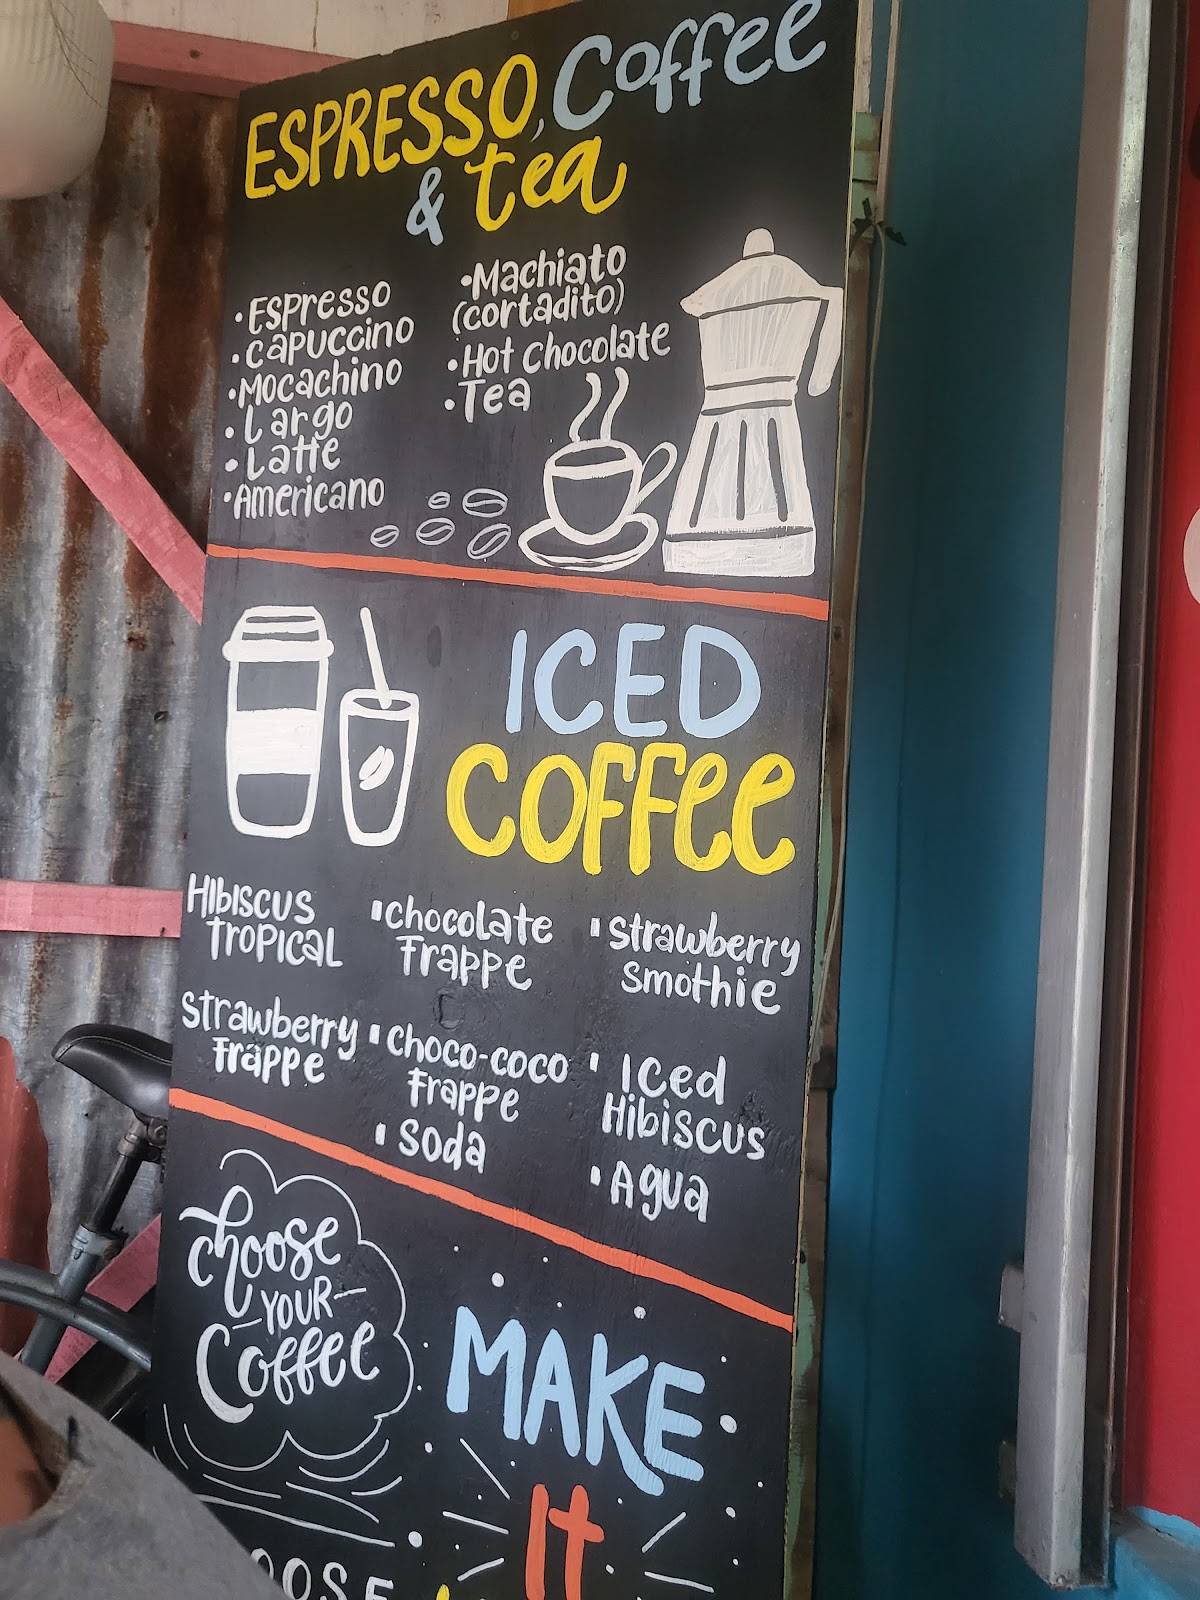 ESPRESSO, Coffee
& tea
• Espresso
• Capuccino
• Mocachino
• Largo
• Latte
• Americano
• Machiato
(cortadito)
• Hot Chocolate
• Tea
ICED
COFFee
Hibiscus
Tropical
• Chocolate
Frappe
• Strawberry
Smothie
Strawberry
Frappe
• Choco-coco
Frappe
• Iced
Hibiscus
• Soda
• Agua
Choose
YOUR
Coffee
MAKE
It